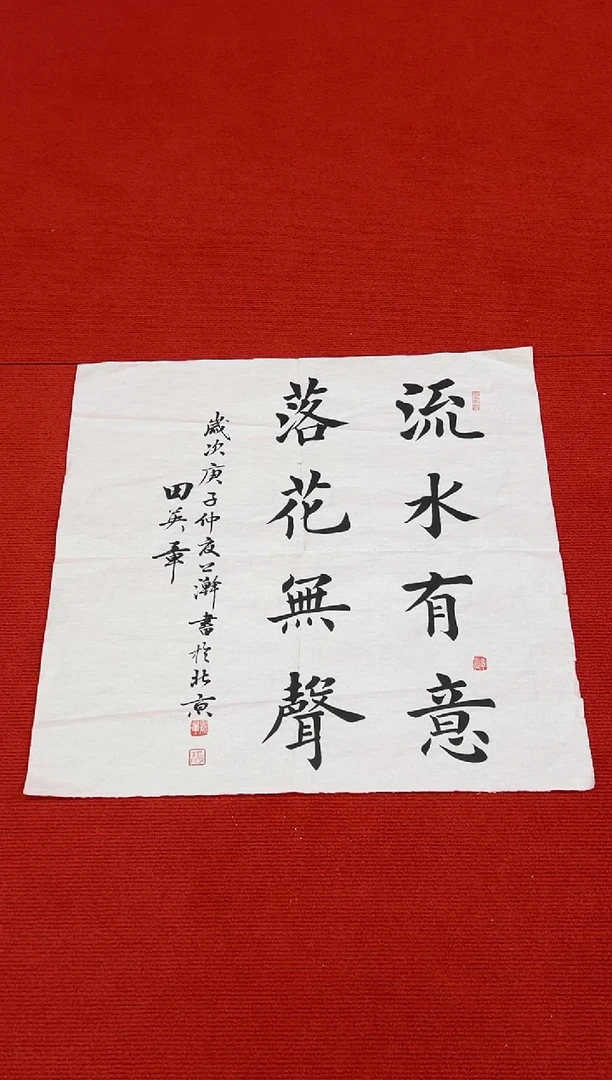 流水有意
落花無聲
歲次庚子仲夏上澣書於北京
田英章